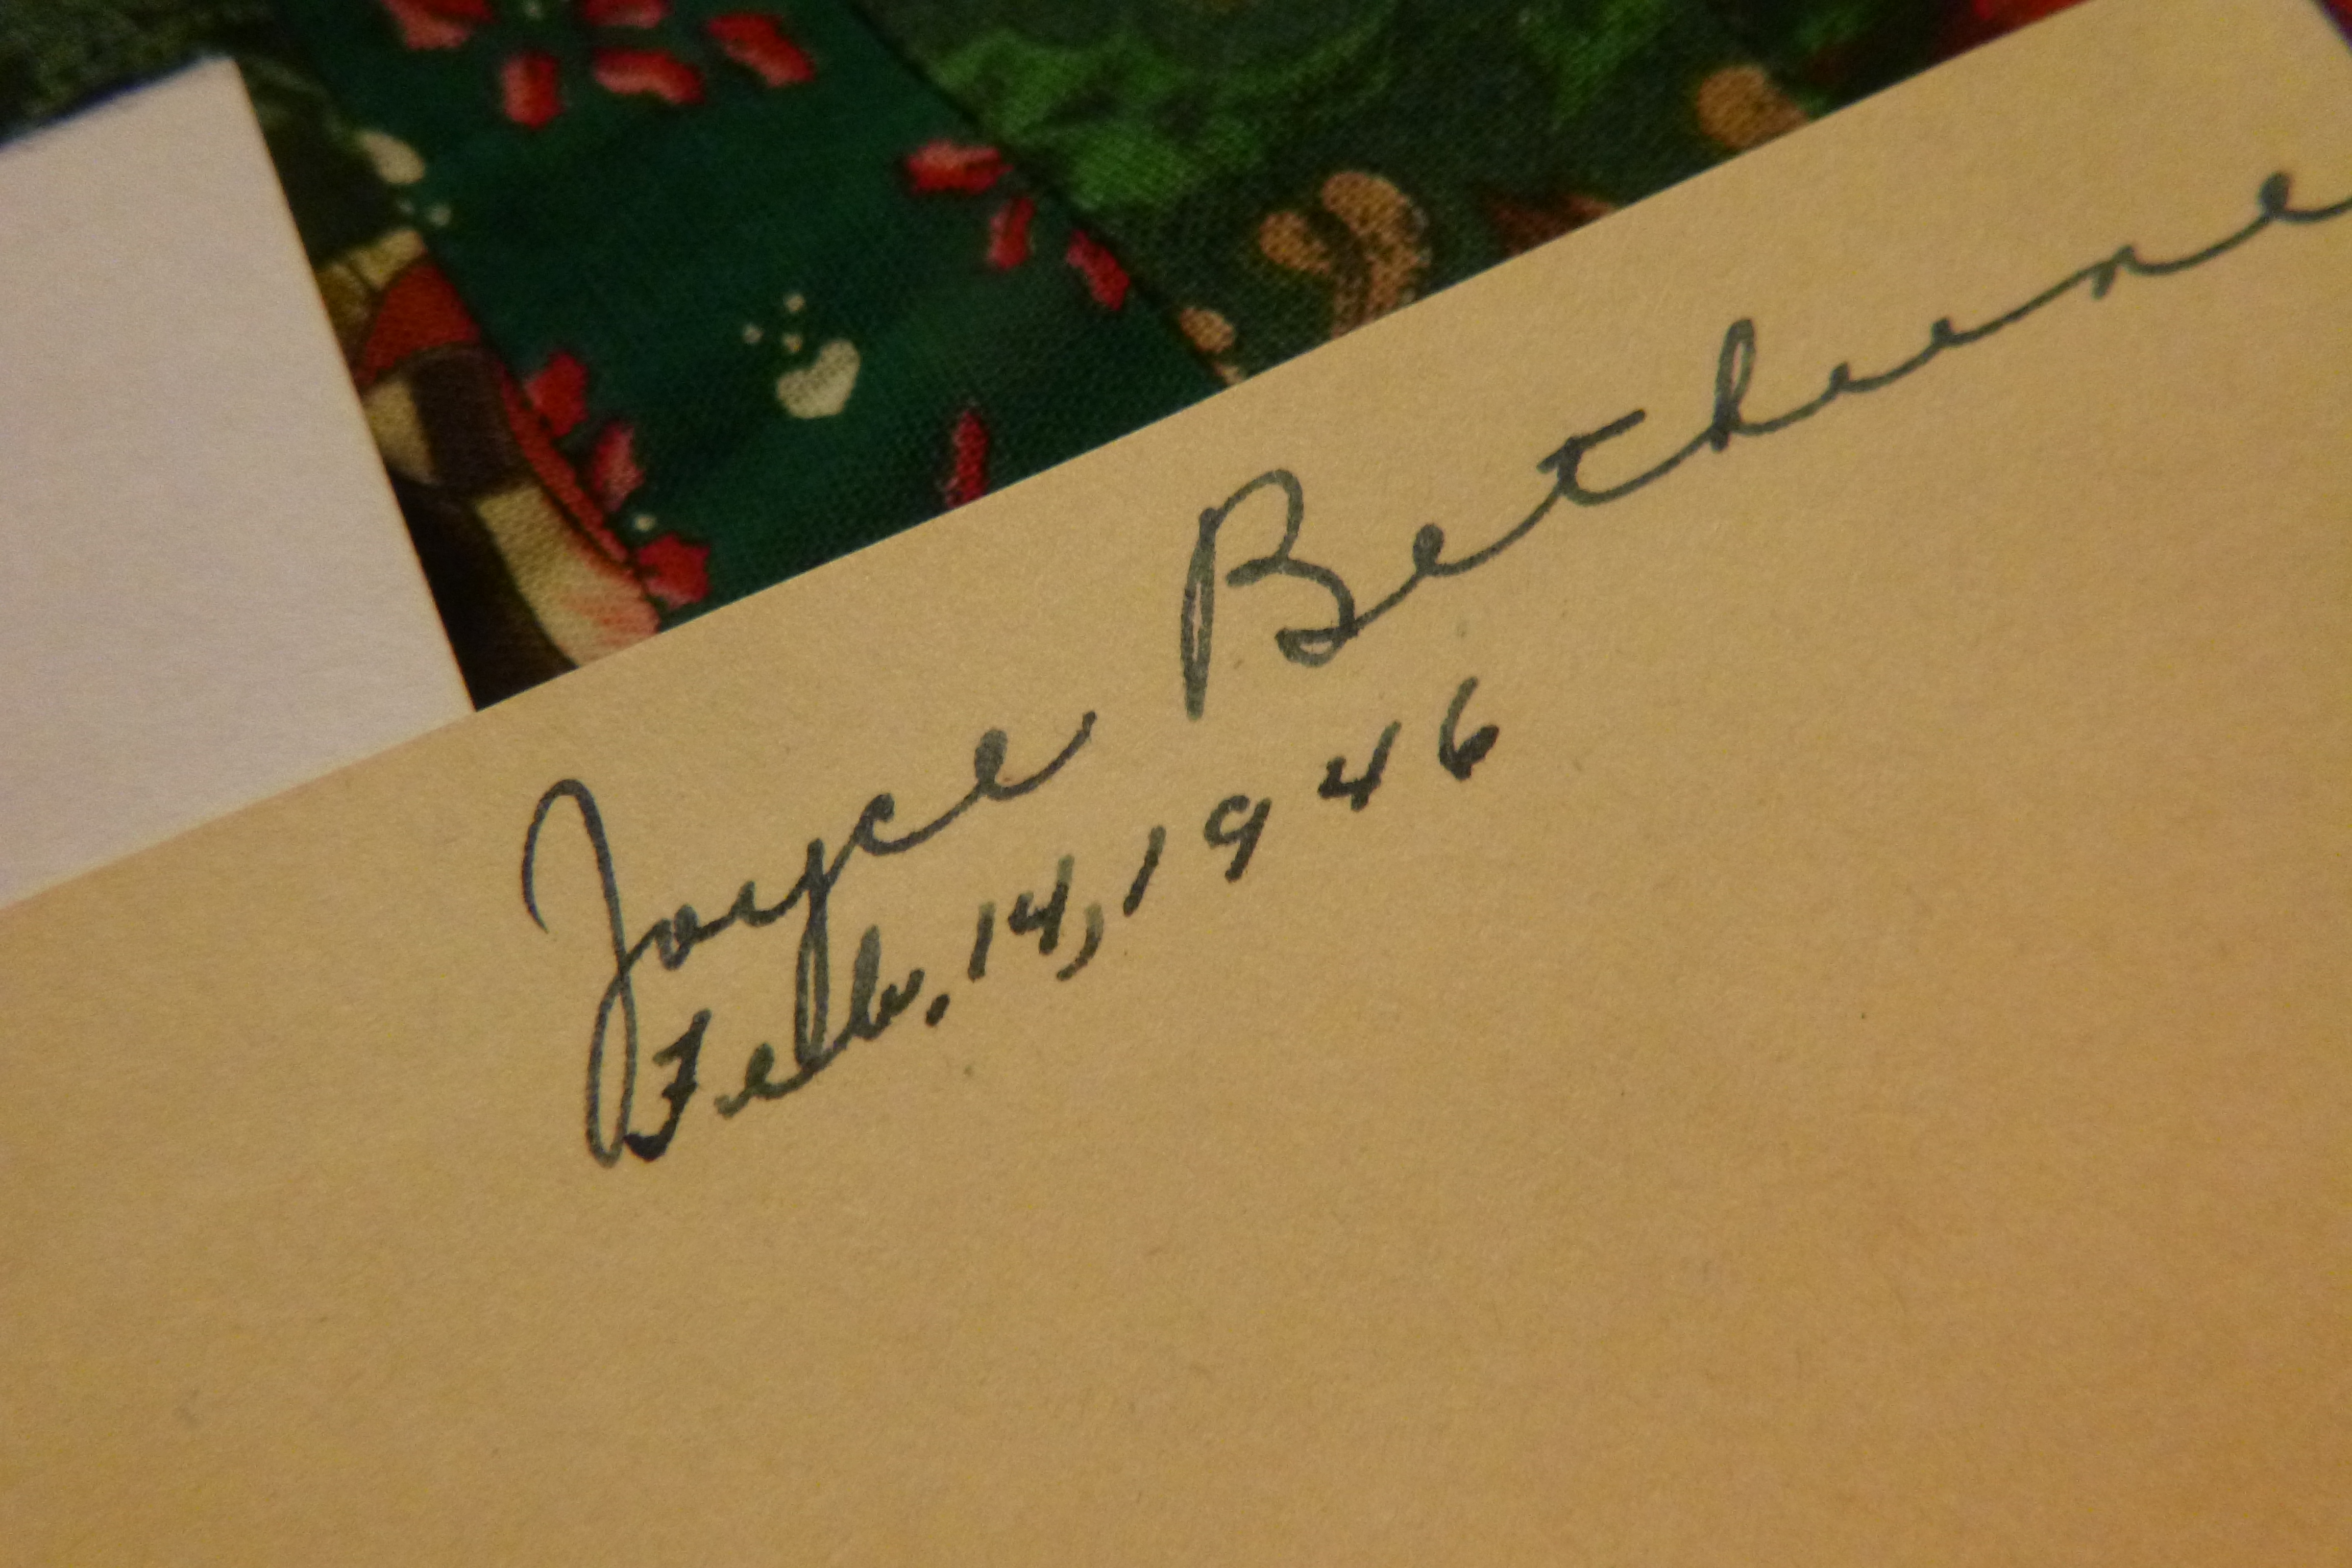 Joyce Bethune
Feb. 14, 1946